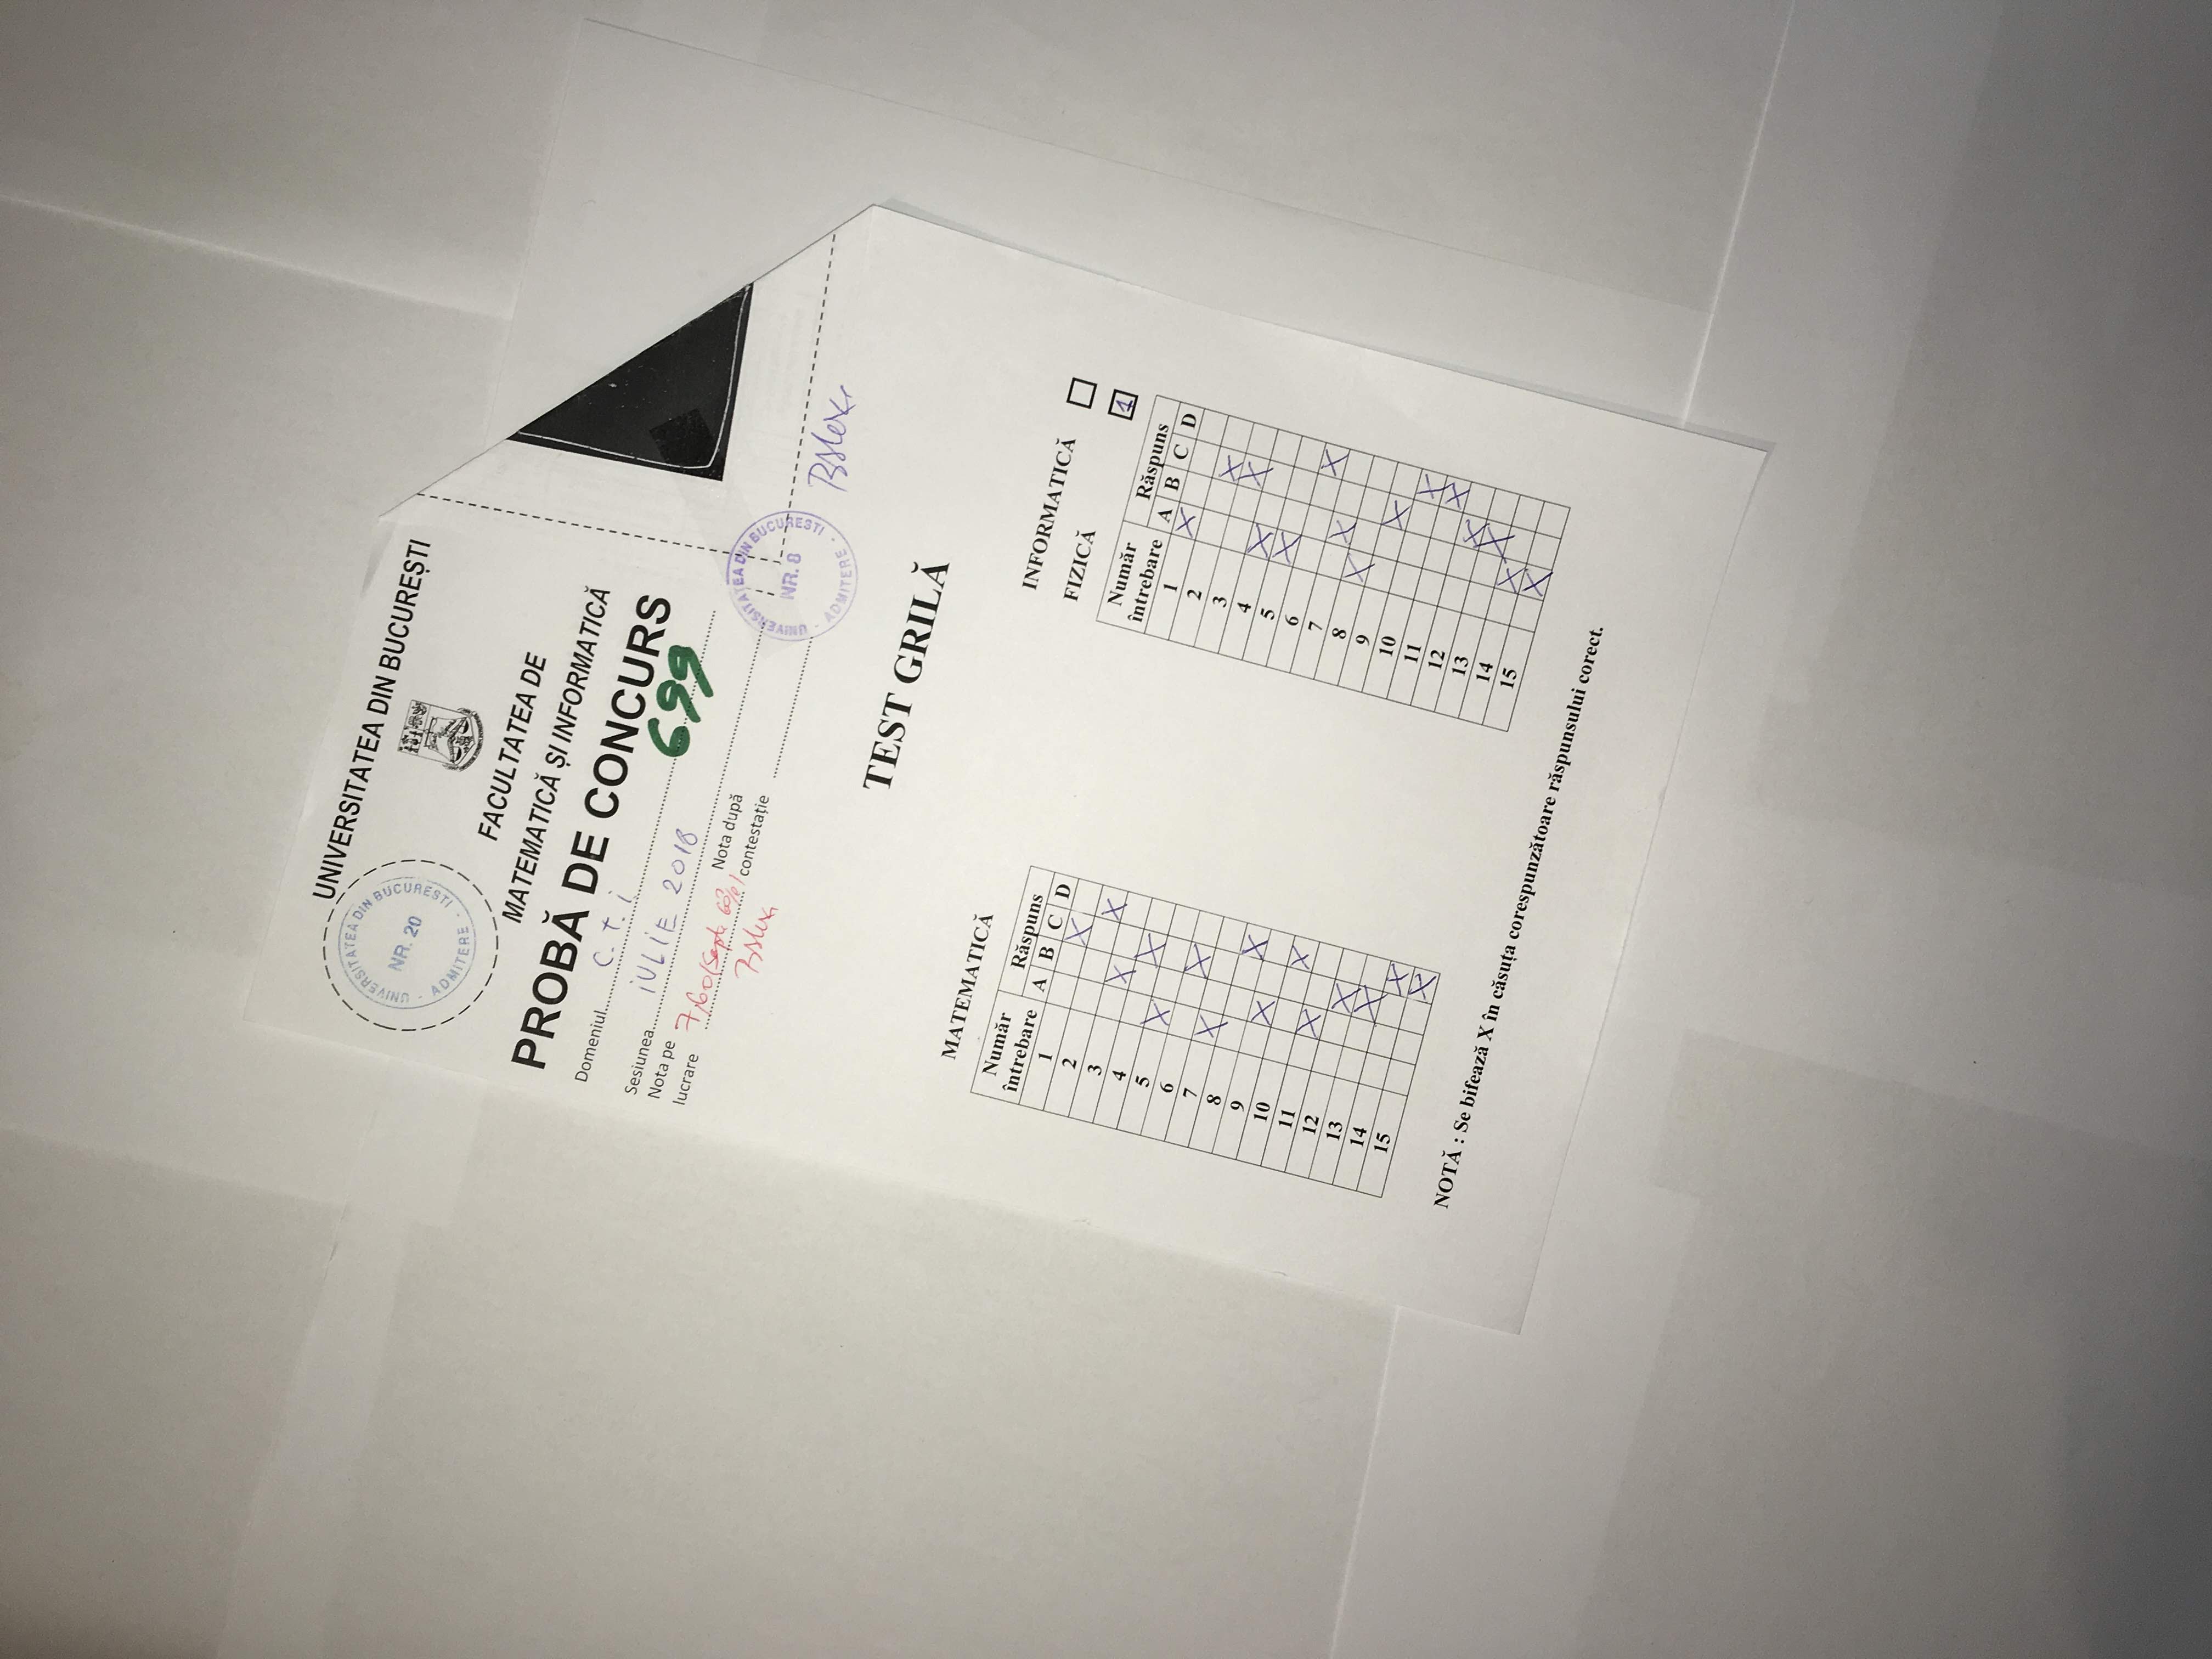 UNIVERSITATEA DIN BUCUREȘTI
UNIVERSITATEA DIN BUCURESTI
NR. 20
- ADMITERE -
FACULTATEA DE
MATEMATICĂ ȘI INFORMATICĂ
PROBĂ DE CONCURS
Domeniul C. T. i
699
Sesiunea iULiE 2018
Nota pe lucrare 7,60 (Șapte 60%)
Nota după contestație
UNIVERSITATEA DIN BUCURESTI
NR. 8
- ADMITERE -
TEST GRILĂ
MATEMATICĂ
Număr întrebare Răspuns
A B C D
1 X
2 X
3 X
4 X
5 X
6 X
7 X
8 X
9 X
10 X
11 X
12 X
13 X
14 X
15 X
INFORMATICĂ
FIZICĂ 1
Număr întrebare Răspuns
A B C D
1 X
2 X
3 X
4 X
5 X
6 X
7 X
8 X
9 X
10 X
11 X
12 X
13 X
14 X
15 X
NOTĂ : Se bifează X în căsuța corespunzătoare răspunsului corect.